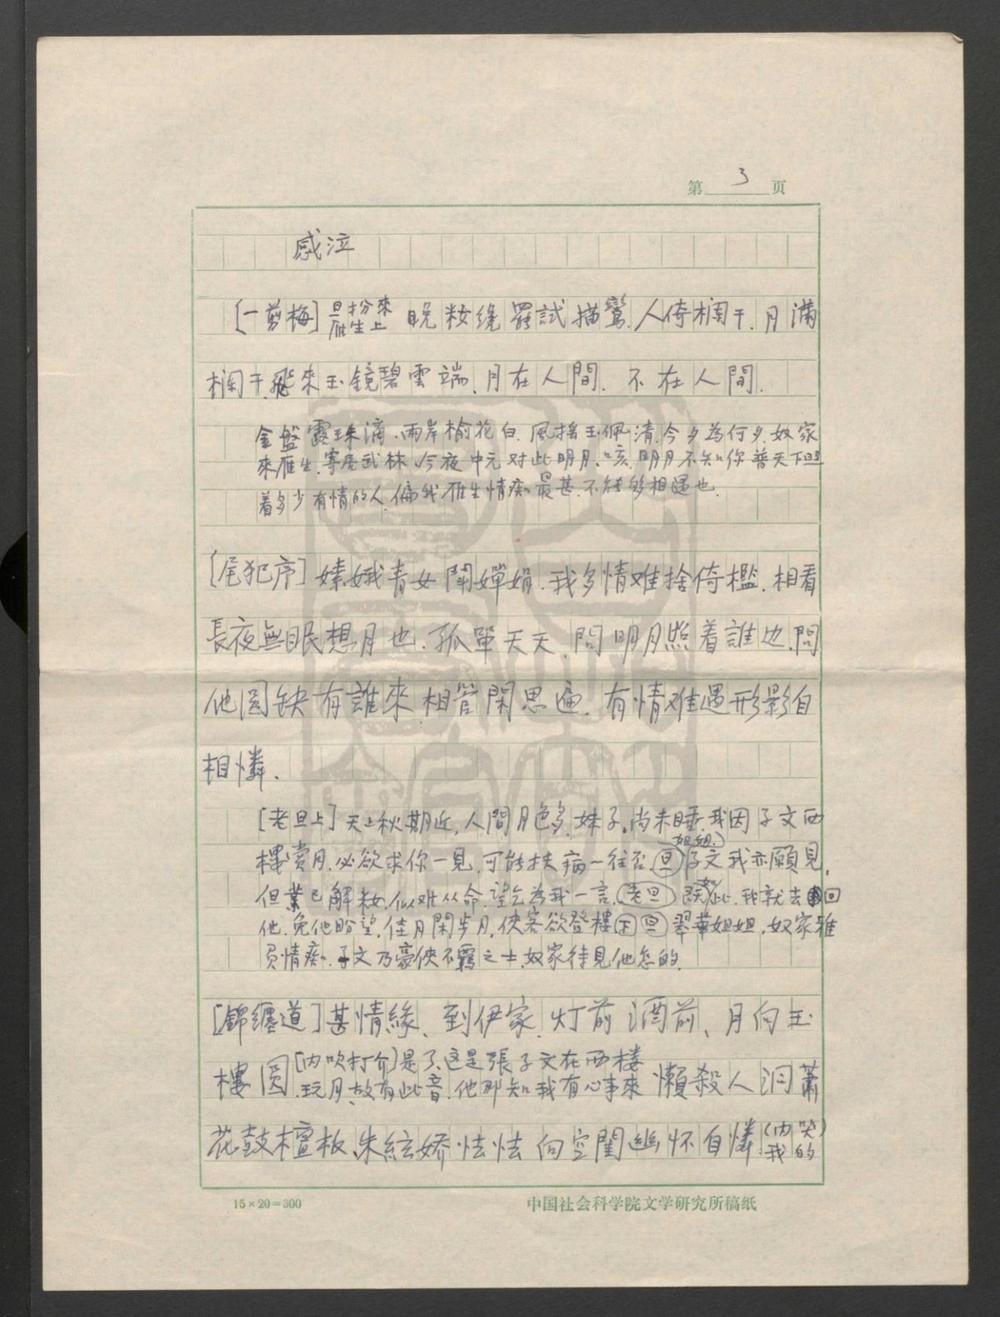 第 3 页
感泣
[一剪梅] 旦扮來雁生上 晚粧纔罷試描鸞.人倚欄干.月滿
欄干.飛來玉鏡碧雲端.月在人間.不在人間.
金盤露珠滴.兩岸榆花白.風搖玉佩清.今夕為何夕.奴家
來雁生.寄居武林.今夜中元.对此明月.咳.明月不知你普天下照
着多少有情的人.偏我雁生情痴最甚.不能够相遇也.
[尾犯序] 嫦娥青女鬧嬋娟.我多情难捨倚檻.相看
長夜無眠想月也.孤單天天.問明月照着誰也.問
他圓缺有誰來相管閑思遍.有情难遇形影自
相憐.
[老旦上] 天上秋期近,人間月色多.妹子.尚未睡.我因子文西
樓賞月.必欲求你一見.可能扶病一往否(旦)姐姐.子文我亦願見.
但業已解粧.似难从命.望乞為我一言.(老旦)既如此.我就去回
他.免他盼望.佳月閑步月.俠客欲登樓(下)(旦)翠華姐姐.奴家雅
負情痴.子文乃豪俠不羈之士.奴家待見他怎的.
[錦纏道] 甚情緣、到伊家.灯前酒前、月向玉
樓圓[内吹打介]是了.这是張子文在西樓玩月.故有此音.他那知我有心事來 懶殺人洞蕭
花鼓檀板.朱絃嬌怯怯向空閨幽怀自憐.(内笑)我的
15×20=300
中国社会科学院文学研究所稿纸